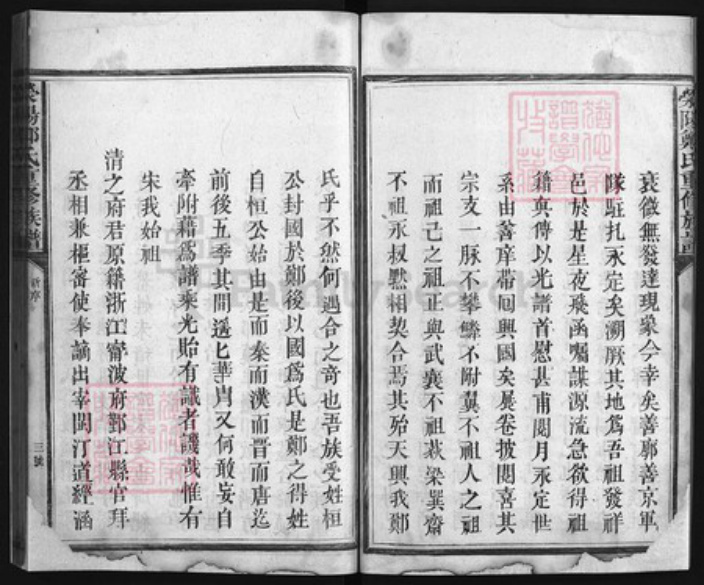 滎陽鄭氏重修族譜
衰微無發達現象今幸矣善廓善京軍
隊駐扎永定矣溯厥其地爲吾祖發祥
邑於是星夜飛函囑謀源流急欲得祖
籍真傳以光譜首慰甚甫閱月永定世
系由善庠帶回興國矣展卷披閱喜其
宗支一脉不攀鱗不附翼不祖人之祖
而祖己之祖正與武襄不祖狄梁巽齋
不祖永叔黙相契合焉其殆天興我鄭
氏乎不然何遇合之奇也吾族受姓桓
公封國於鄭後以國爲氏是鄭之得姓
自桓公始由是而秦而漢而晋而唐迄
前後五季其間遥遥華胄又何敢妄自
牽附藉爲譜乘光貽有識者譏哉惟有
宋我始祖
清之府君原籍浙江甯波府鄞江縣官拜
丞相兼樞密使奉諭出宰閩汀道經涵
滎陽鄭氏重修族譜
新序
三號
FamilySearch